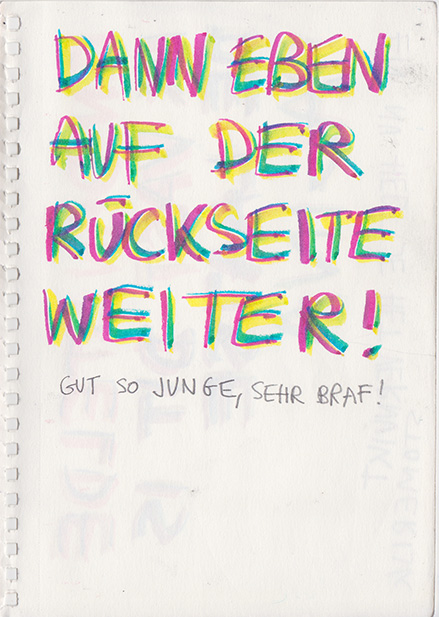 DANN EBEN
AUF DER
RÜCKSEITE
WEITER!
GUT SO JUNGE, SEHR BRAF!